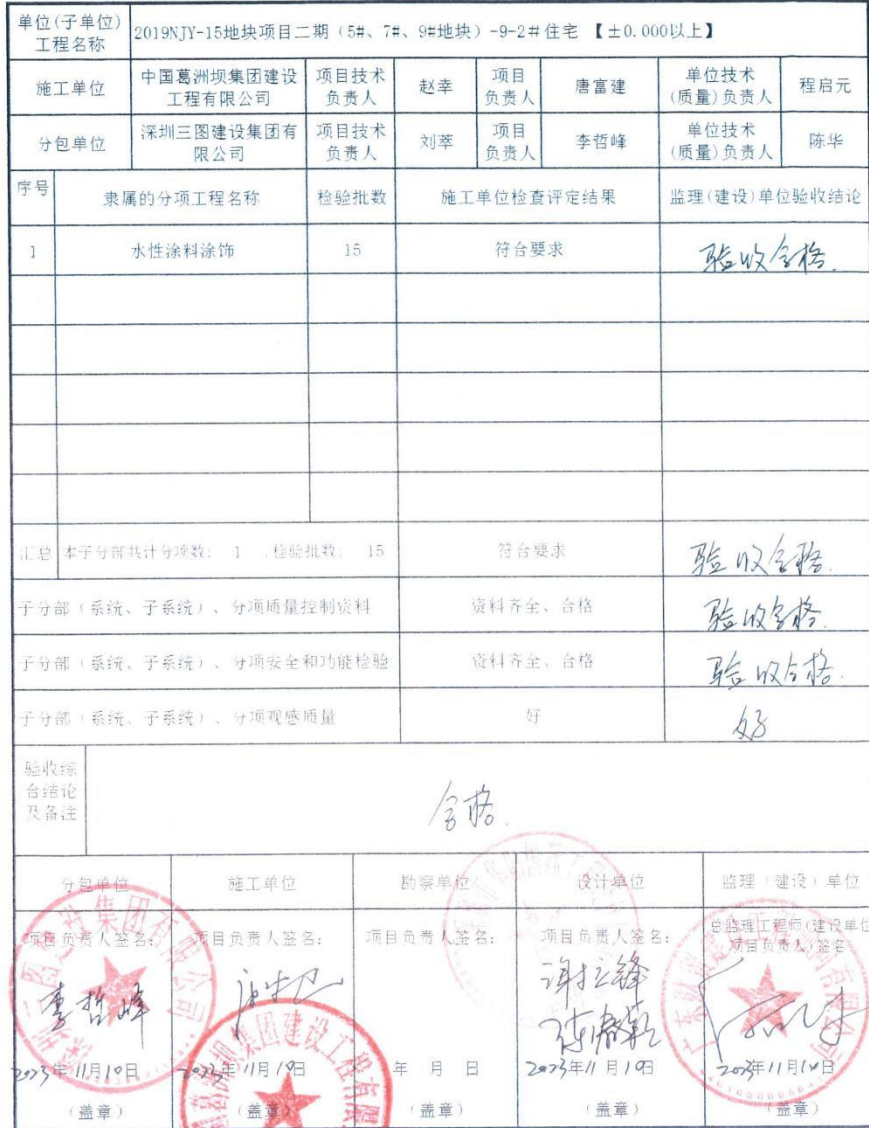 单位(子单位)
工程名称
2019NJY-15地块项目二期（5#、7#、9#地块）-9-2#住宅 【±0.000以上】
施工单位
中国葛洲坝集团建设
工程有限公司
项目技术
负责人
赵幸
项目
负责人
唐富建
单位技术
(质量)负责人
程启元
分包单位
深圳三图建设集团有
限公司
项目技术
负责人
刘萃
项目
负责人
李哲峰
单位技术
(质量)负责人
陈华
序号
隶属的分项工程名称
检验批数
施工单位检查评定结果
监理(建设)单位验收结论
1
水性涂料涂饰
15
符合要求
验收合格.
汇总
本子分部共计分项数： 1 ,检验批数： 15
符合要求
验收合格.
子分部（系统、子系统）、分项质量控制资料
资料齐全、合格
验收合格.
子分部（系统、子系统）、分项安全和功能检验
资料齐全、合格
验收合格.
子分部（系统、子系统）、分项观感质量
好
好
验收综
合结论
及备注
合格.
分包单位
施工单位
勘察单位
设计单位
监理（建设）单位
项目负责人签名：
项目负责人签名：
项目负责人签名：
项目负责人签名：
总监理工程师(建设单位
项目负责人)签名
李哲峰
2023年11月10日
2023年11月10日
年 月 日
2023年11月10日
2023年11月10日
（盖章）
（盖章）
（盖章）
（盖章）
（盖章）